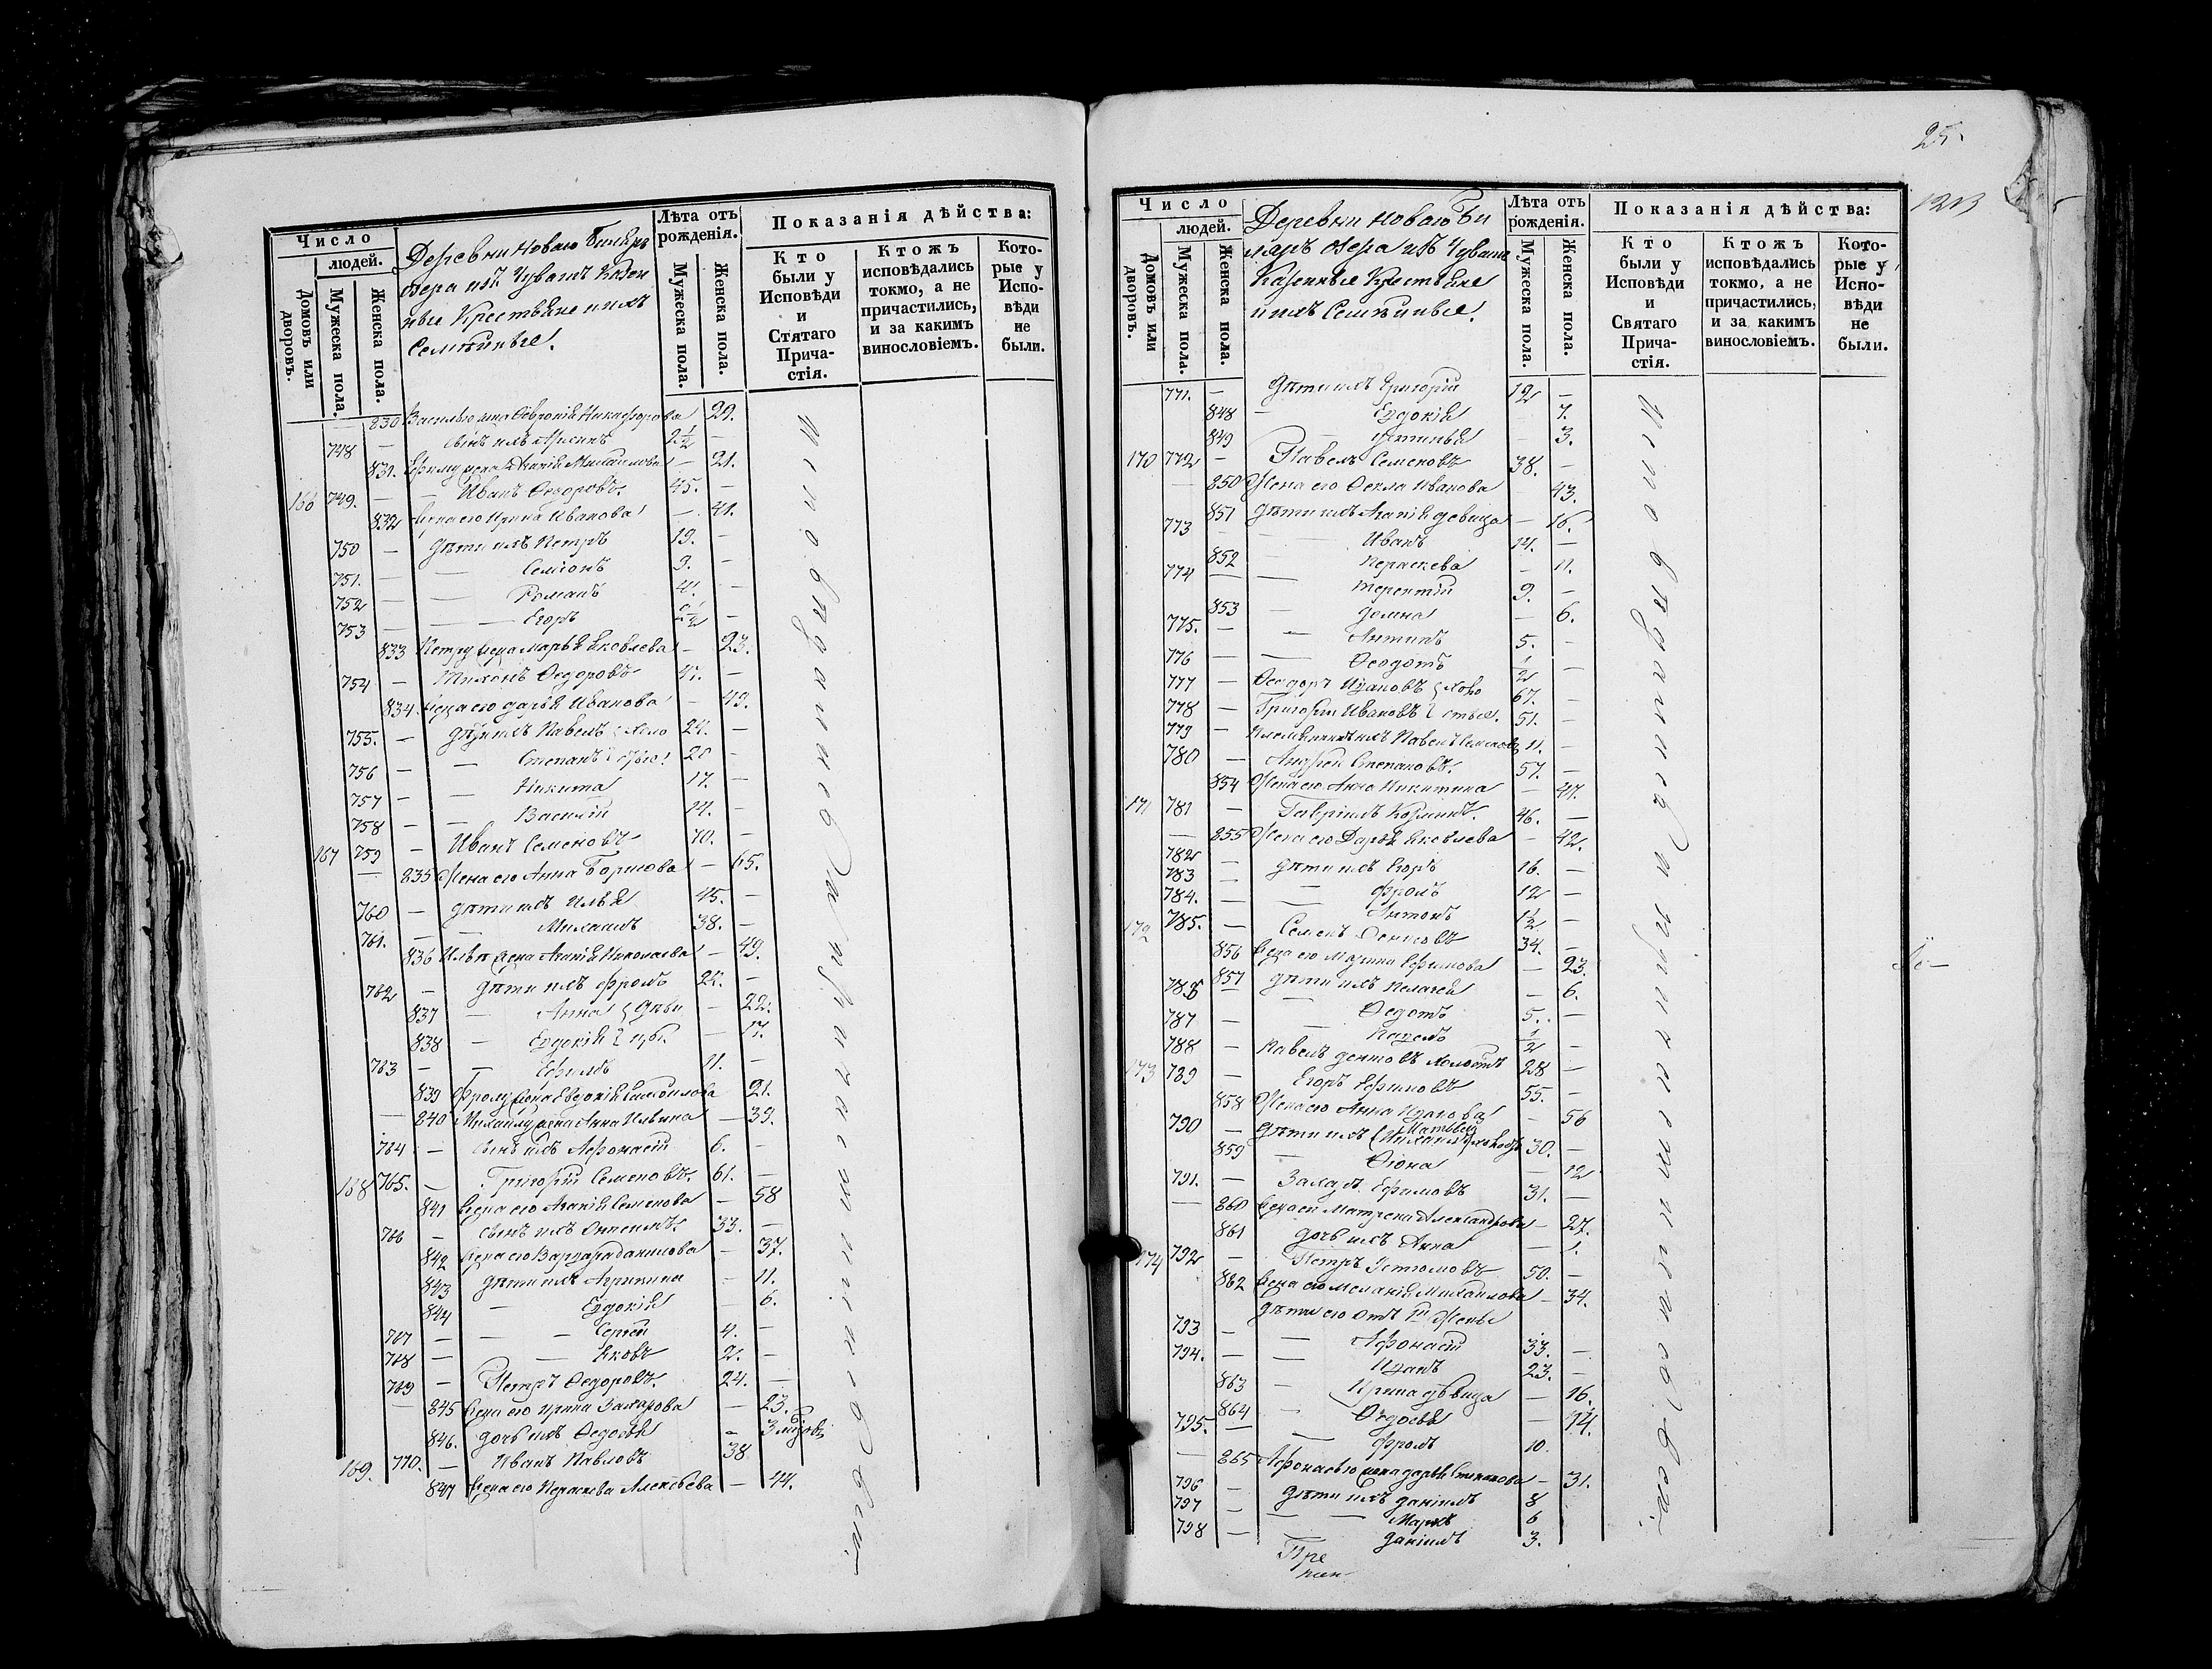 25.
1213
Число
людей.
Домовъ или дворовъ.
Мужеска пола.
Женска пола.
Деревни Новаго Билярь
озера изъ Чувашъ Казен
ные Крестьяне и ихъ
Семейные.
Лѣта отъ
рожденія.
Мужеска пола.
Женска пола.
Показанія дѣйства:
Кто
были у
Исповѣди
и
Стятаго
Прича-
стія.
Ктожъ
исповѣдались
токмо, а не
причастились,
и за какимъ
винословіемъ.
Кото-
рые у
Испо-
вѣди
не
были.
830 Василью жена Февронія Никифорова 29.
748 — сынъ ихъ — 2½ —
831. Ефиму жена Агафія Михаилова — 21.
166 749. — Иванъ Ѳедоровъ. 45. —
832 Жена его Ирина Иванова — 41.
750 — Дѣти ихъ Петръ 19. —
751. — — Семіонъ 9. —
752 — — Романъ 4. —
753 — — Егоръ 2½ —
833 Петру жена Марья Яковлева — 23.
754 — Тихонъ Ѳедоровъ 47. —
834. Жена его Дарья Иванова — 49.
755. — Дѣти ихъ Павелъ 24. —
756 — — Степанъ 20 —
757 — — Никита 17. —
758 — — Василій 14. —
167 759 — Иванъ Семеновъ 70. —
— 835 Жена его Анна Борисова — 65.
760 — дѣти ихъ Илья 45. —
761. — — Михаилъ 38. —
836 Ильѣ жена Агафія Николаева — 49.
762 — дѣти ихъ Фролъ 24. —
837 — Анна Дѣви — 22.
838 — Евдокія цы. — 17.
763 — — Ефимъ 11. —
839 Фролу жена Евдокія Самойлова 21.
— 840 Михайлу жена Анна Ильина — 39.
764 — сынъ ихъ Афонасій 6. —
168 765. — Григорій Семеновъ. 61. —
841 Жена его Агафія Семенова — 58
766 — сынъ ихъ Онисимъ. 33. —
842 Жена его Варвара Данилова — 37.
843 дѣти ихъ Агрипина — 11.
844 — Евдокія — 6.
767 — — Сергѣй 4. —
768 — — Яковъ 2. —
769 — Петръ Ѳедоровъ. 24. —
— 845 Жена его Ирина Захарова — 23.
846. дочь ихъ Ѳедосья — 3
169. 770. — Иванъ Павловъ 38
847 Жена его Параскева Алексѣева — 44.
Исповѣдались и причастились
Число
людей.
Домовъ или дворовъ.
Мужеска пола.
Женска пола.
Деревни Новаго Би
ляръ озера изъ Чувашъ
Казенные Крестьяне
и ихъ Семейные.
Лѣта отъ
рожденія.
Мужеска пола.
Женска пола.
Показанія дѣйства:
Кто
были у
Исповѣди
и
Святаго
Прича-
стія.
Ктожъ
исповѣдались
токмо, а не
причастились,
и за какимъ
винословіемъ.
Кото-
рые у
Испо-
вѣди
не
были.
771. — Дѣти ихъ Григорій 12 —
848 — Евдокія 7.
849 — Устинья — 3.
170 772 — Павелъ Семеновъ 38. —
— 850 Жена его Ѳекла Иванова — 43.
851 Дѣти ихъ Агафія девица — 16.
773 — Иванъ 14. —
852 Параскева — 11.
774 — — Терентій 9. —
853 — Домна — 6.
775. — — Антипъ 5. —
776 — — Ѳеодотъ ½ —
777 — Ѳеодоръ Ивановъ холо 67. —
778 — Григорій Ивановъ стые. 51. —
779 — Племянникъ ихъ Павелъ Семеновъ 11. —
780 — Андрей Степановъ. 57. —
854 Жена его Анна Никитина — 47.
171 781 — Гаврилъ Козминъ. 46. —
— 855 Жена его Дарья Яковлева — 42.
782 — дѣти ихъ Егоръ 16. —
783 — — Фролъ 12 —
784. — — Антонъ 1½ —
172 785. — Семенъ Денисовъ 34. —
856 Жена его Марина Ефимова — 23.
857 дѣти ихъ Пелагея — 6.
786 — — Ѳедотъ 5. —
787 — — Павелъ ½ —
788 — Павелъ холостъ 28 —
173 789 — Егоръ Ефимовъ 55. —
858 Жена его Анна — 56
790 — Дѣти ихъ Матвѣй 30. —
859 — Ѳіона — 12
791. — Захаръ Ефимовъ 31. —
— 860 Жена его Матрена Александрова — 27.
861 дочь ихъ Анна — 1.
174 792 — Петръ 50. —
862 Жена его Меланія Михаилова — 34.
Дѣти его отъ жены
793 — — Афонасій 33. —
794. — — Иванъ 23. —
863 — Ирина дѣвица — 16.
864 — Ѳедосья — 14.
795. — — Фролъ 10.
— 865 Афонасью жена Дарья Степанова — 31.
796 — дѣти ихъ Даніилъ 8
797 — — Маркъ 6
798 — Даніилъ 3.
Исповѣдались и причастились